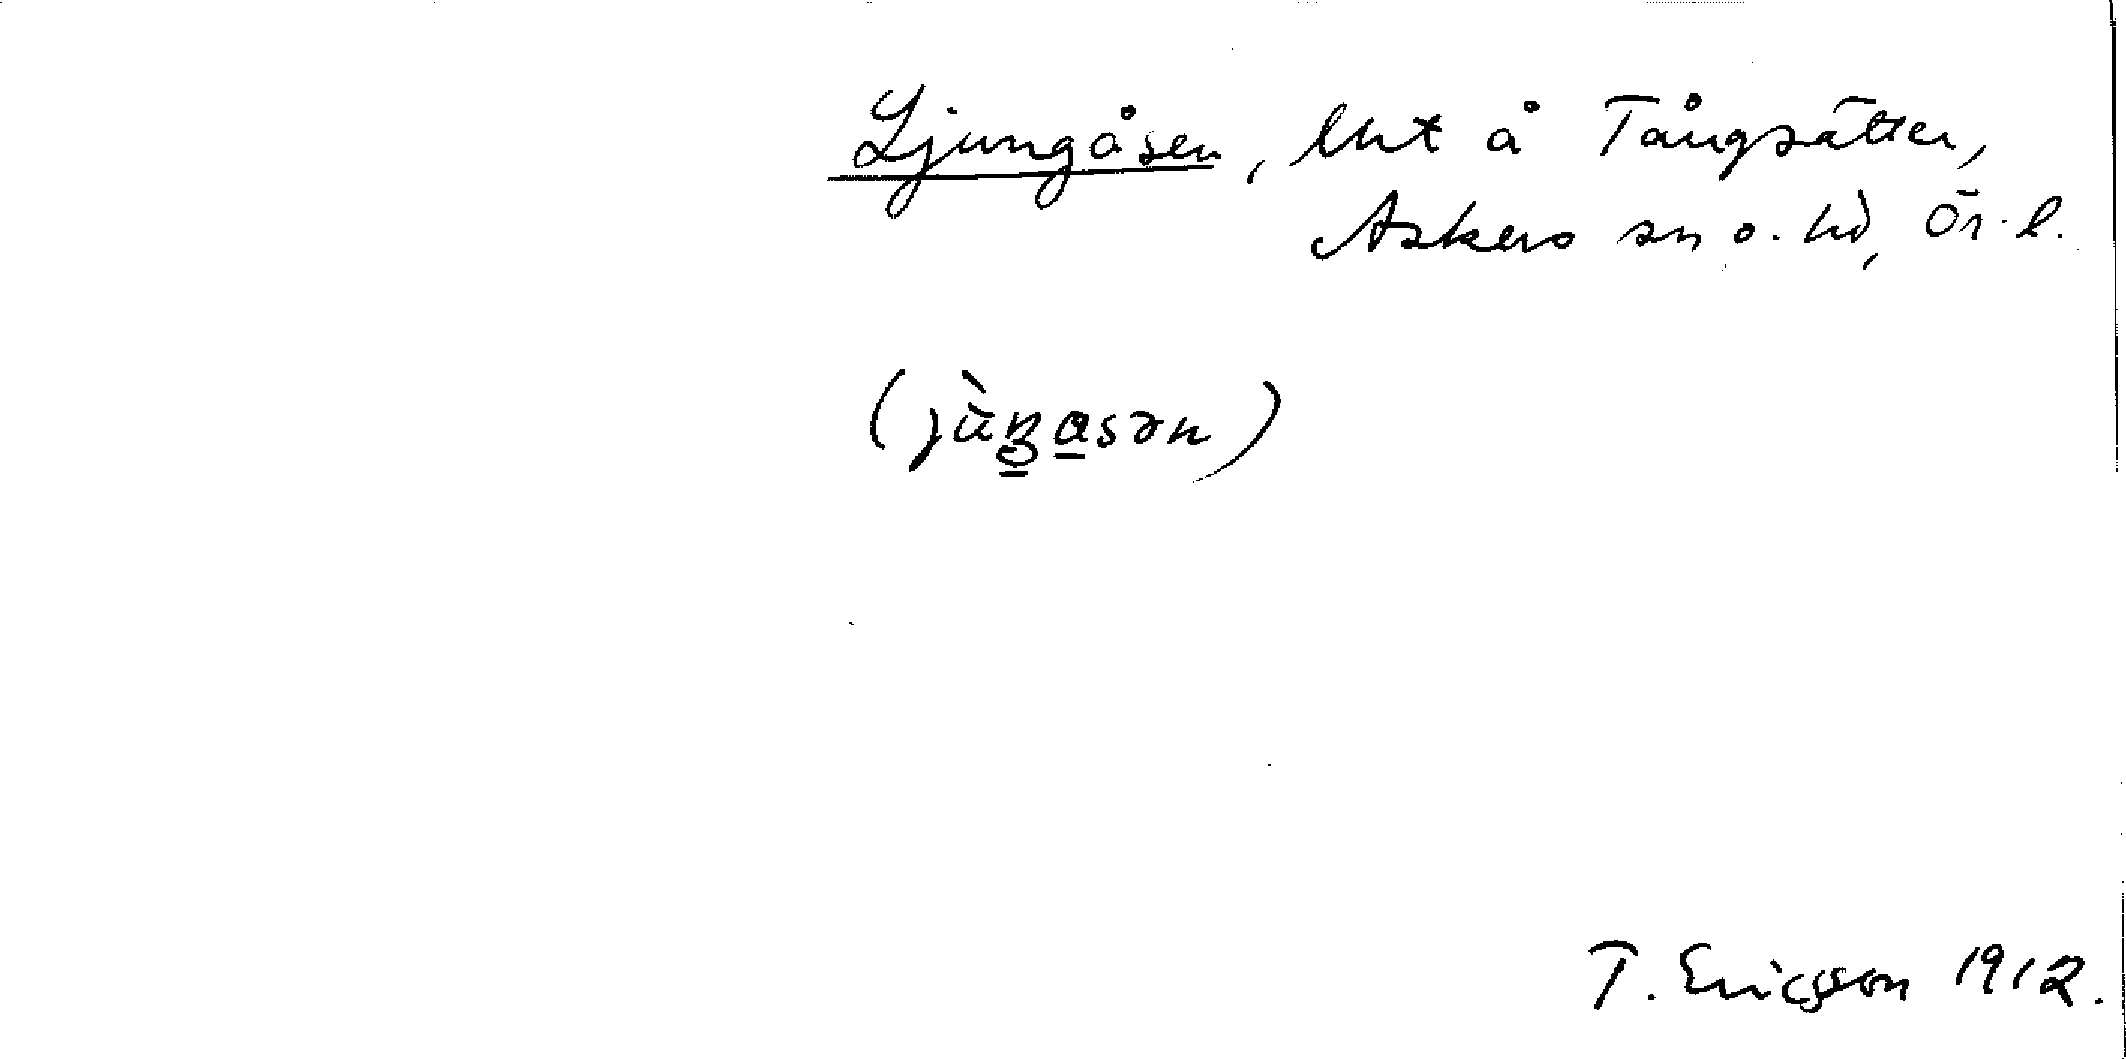 Ljungåsen, lht å Tångsätter,
Askers sn o. hd, Ör. l.
T. Ericsson 1912.